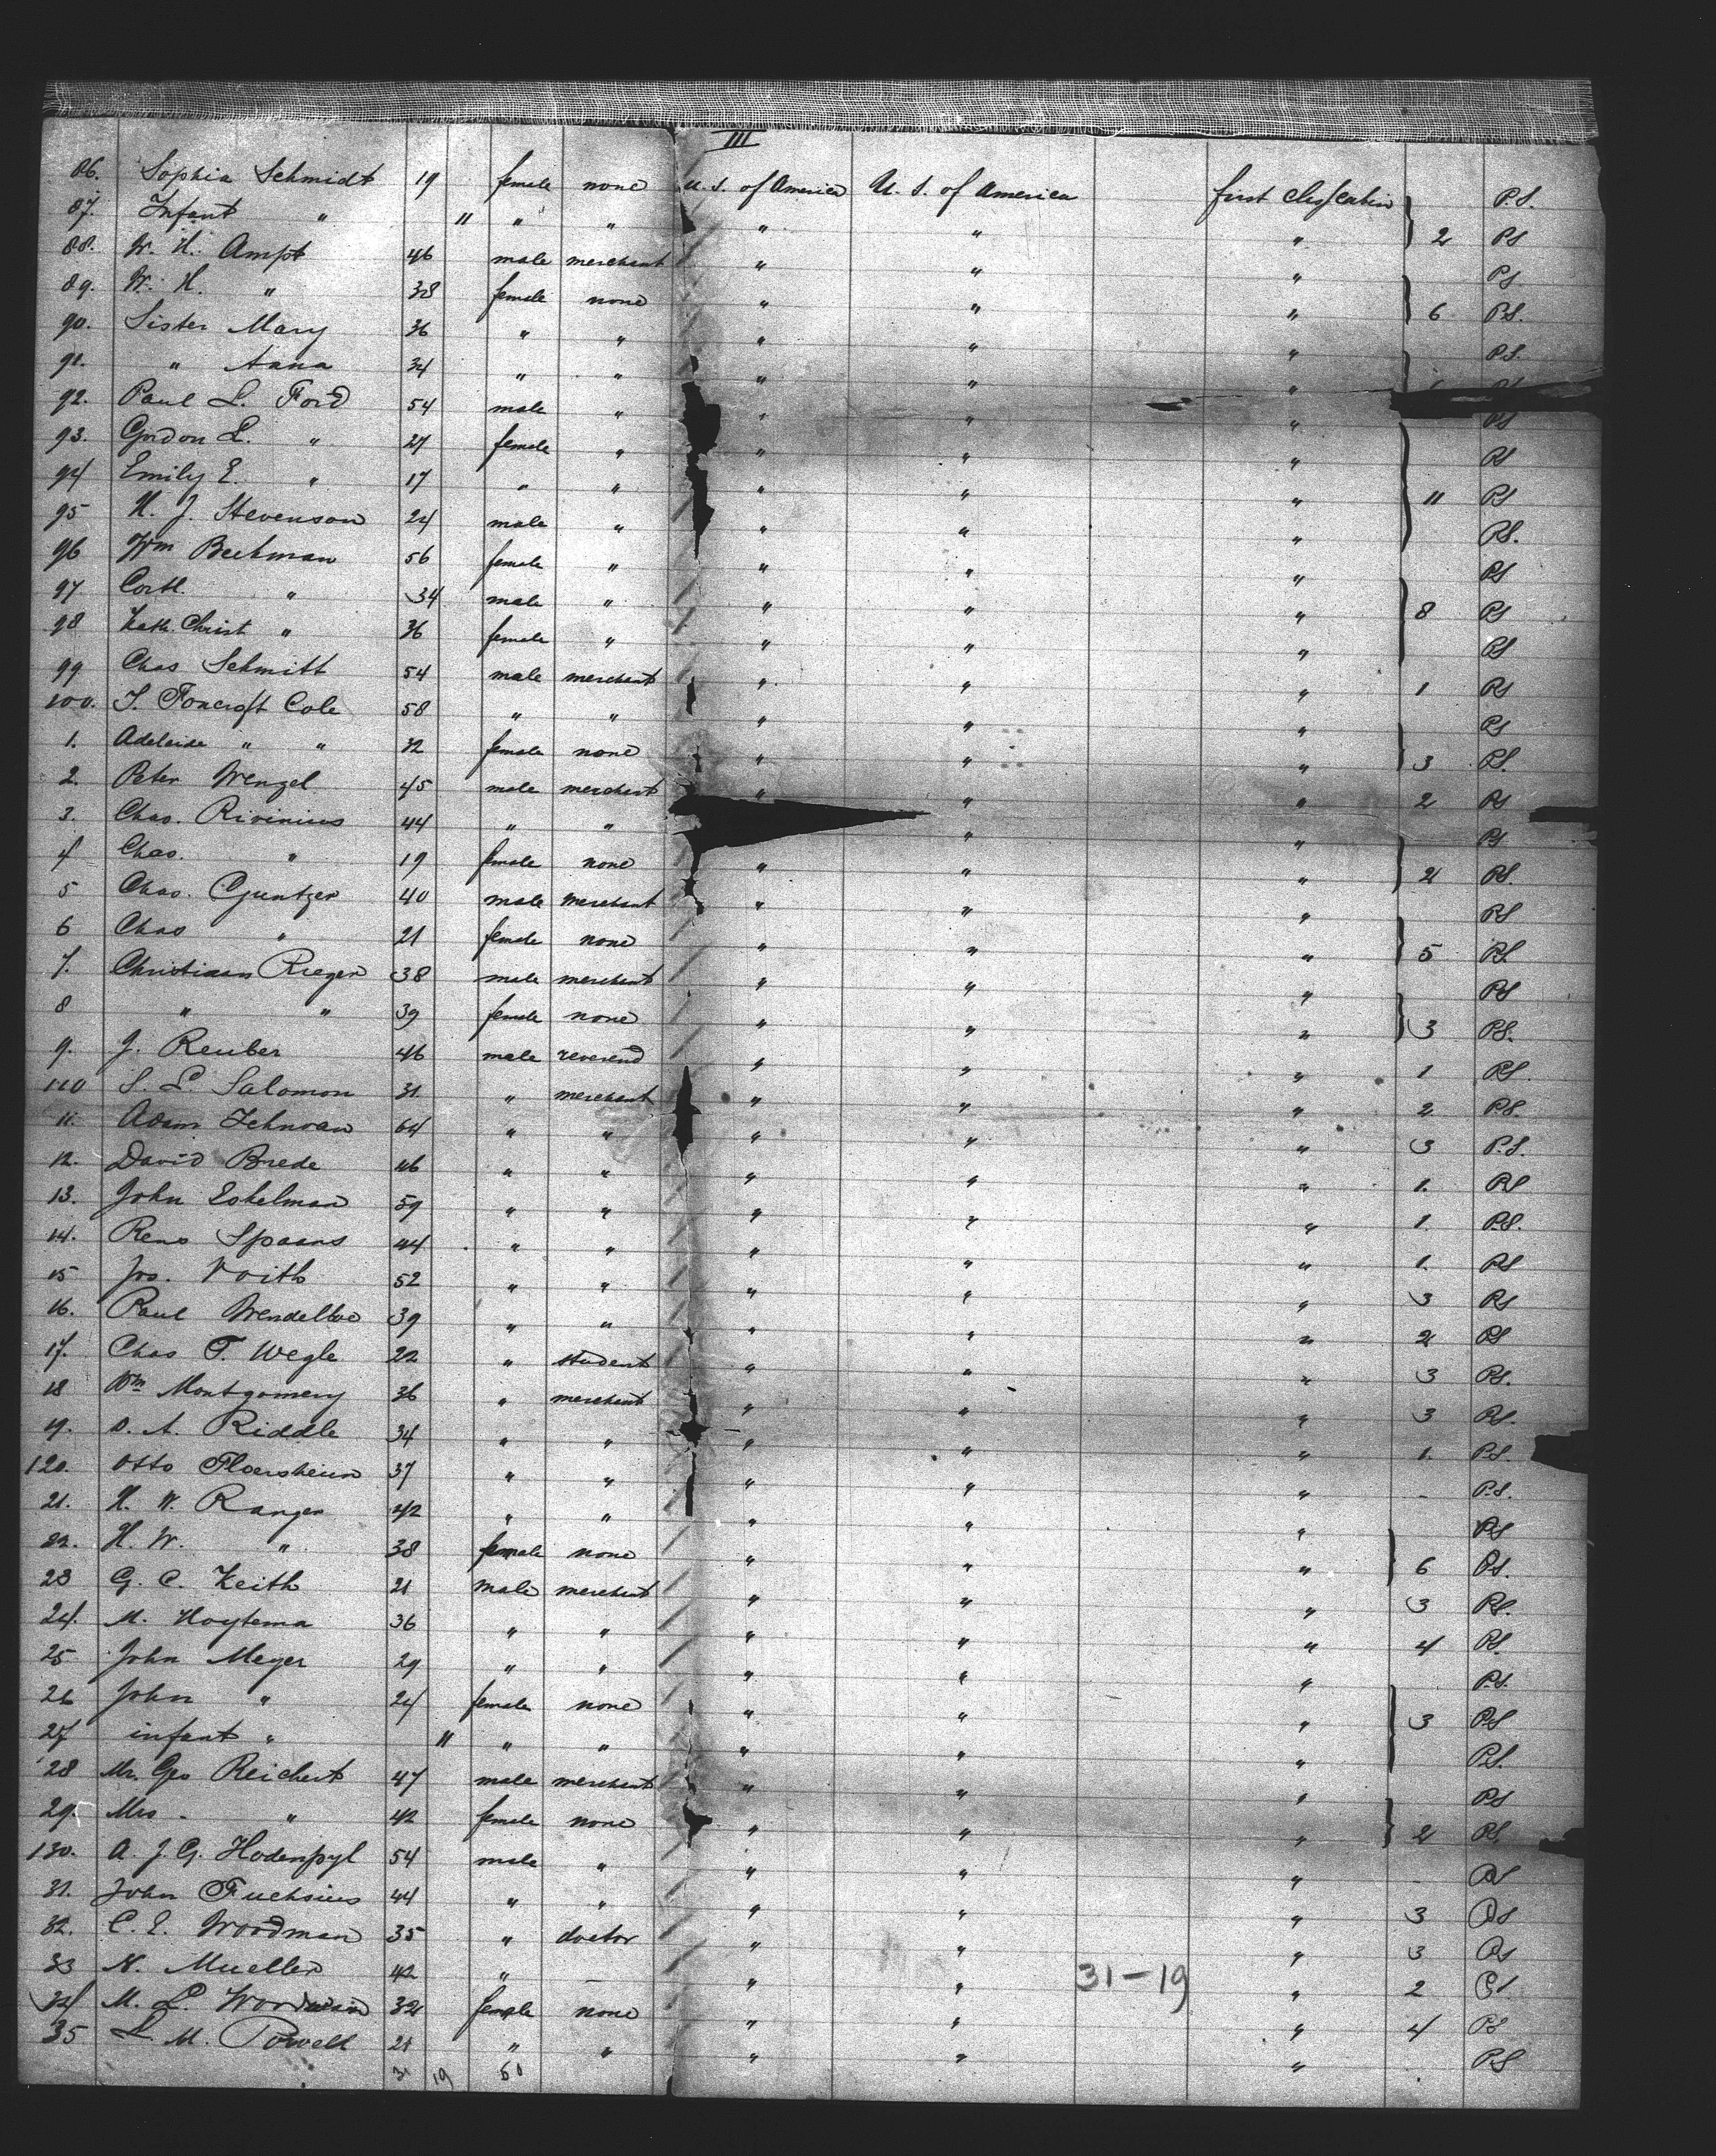 III
86. Sophia Schmidt 19 female none U. S. of America U. S. of America first class cabin P.S.
87. Infant " 11 " " " " " 2 PS
88. W. H. Ampt 46 male merchant " " " PS
89. W. H. " 38 female none " " " 6 P.S.
90. Sister Mary 36 " " " " " P.S.
91. " Anna 34 " " " " "
92. Paul L. Ford 54 male " " " " PS
93. Gordon L. " 27 female " " " " PS
94 Emily E. " 17 " " " " " 11 PS
95 H. J. Stevenson 24 male " " " " PS.
96 Wm Beekman 56 female " " " " PS
97 Cortl. " 34 male " " " " 8 PS
98 Kath. Christ " 36 female " " " " PS
99 Chas Schmitt 54 male merchant " " " 1 PS
100. J. Foxcroft Cole 58 " " " " " PS
1. Adelaide " " 32 female none " " " 3 P.S.
2. Peter Wenzel 45 male merchant " " " 2 PS
3. Chas. Rivinius 44 " " " " PS
4 Chas. " 19 female none " " " 2 PS.
5 Chas. Guntzer 40 male merchant " " " PS
6 Chas " 21 female none " " " 5 P.S.
7. Christiaan Rieger 38 male merchant " " " PS
8 " " 39 female none " " " 3 PS.
9. J. Reuber 46 male reverend " " " 1 PS.
110 S. L. Salomon 31 " merchant " " " 2 PS.
11. Adam 64 " " " " " 3 P.S.
12. David Brede 46 " " " " " 1. PS
13. John Eshelman 59 " " " " " 1. P.S.
14. Reno Spaans 44 " " " " " 1. PS
15 Jos. Voith 52 " " " " " 3 PS
16. Paul 39 " " " " " 2 PS
17. Chas F. Wegle 22 " student " " " 3 PS.
18 Wm Montgomery 36 " merchant " " " 3 PS.
19. D. A. Riddle 34 " " " " " 1. P.S.
120. Otto Floersheim 37 " " " " " - P.S.
21. H. W. Ranger 42 " " " " " PS
22. H. W. " 38 female none " " " 6 PS.
23 G. C. Keith 21 male merchant " " " 3 PS.
24. M. Hoytema 36 " " " " " 4 PS.
25 John Meyer 29 " " " " " P.S.
26 John " 24 female none " " " 3 PS
27 infant " 11 " " " " " P.S.
28 Mr. Geo Reichert 47 male merchant " " " PS
29. Mrs - " 42 female none " " " 2 PS.
130. A. J. G. Hodenpyl 54 male " " " " - PS
31. John Fuchsius 44 " " " " " 3 PS
32. C. E. Woodman 35 " doctor " " " 3 PS
33 N. Mueller 42 " - " " 31-19 " 2 PS.
34 M. L. 32 female none " " " 4 PS
35 L. M. Powell 21 " " " " " . PS
31 19 50